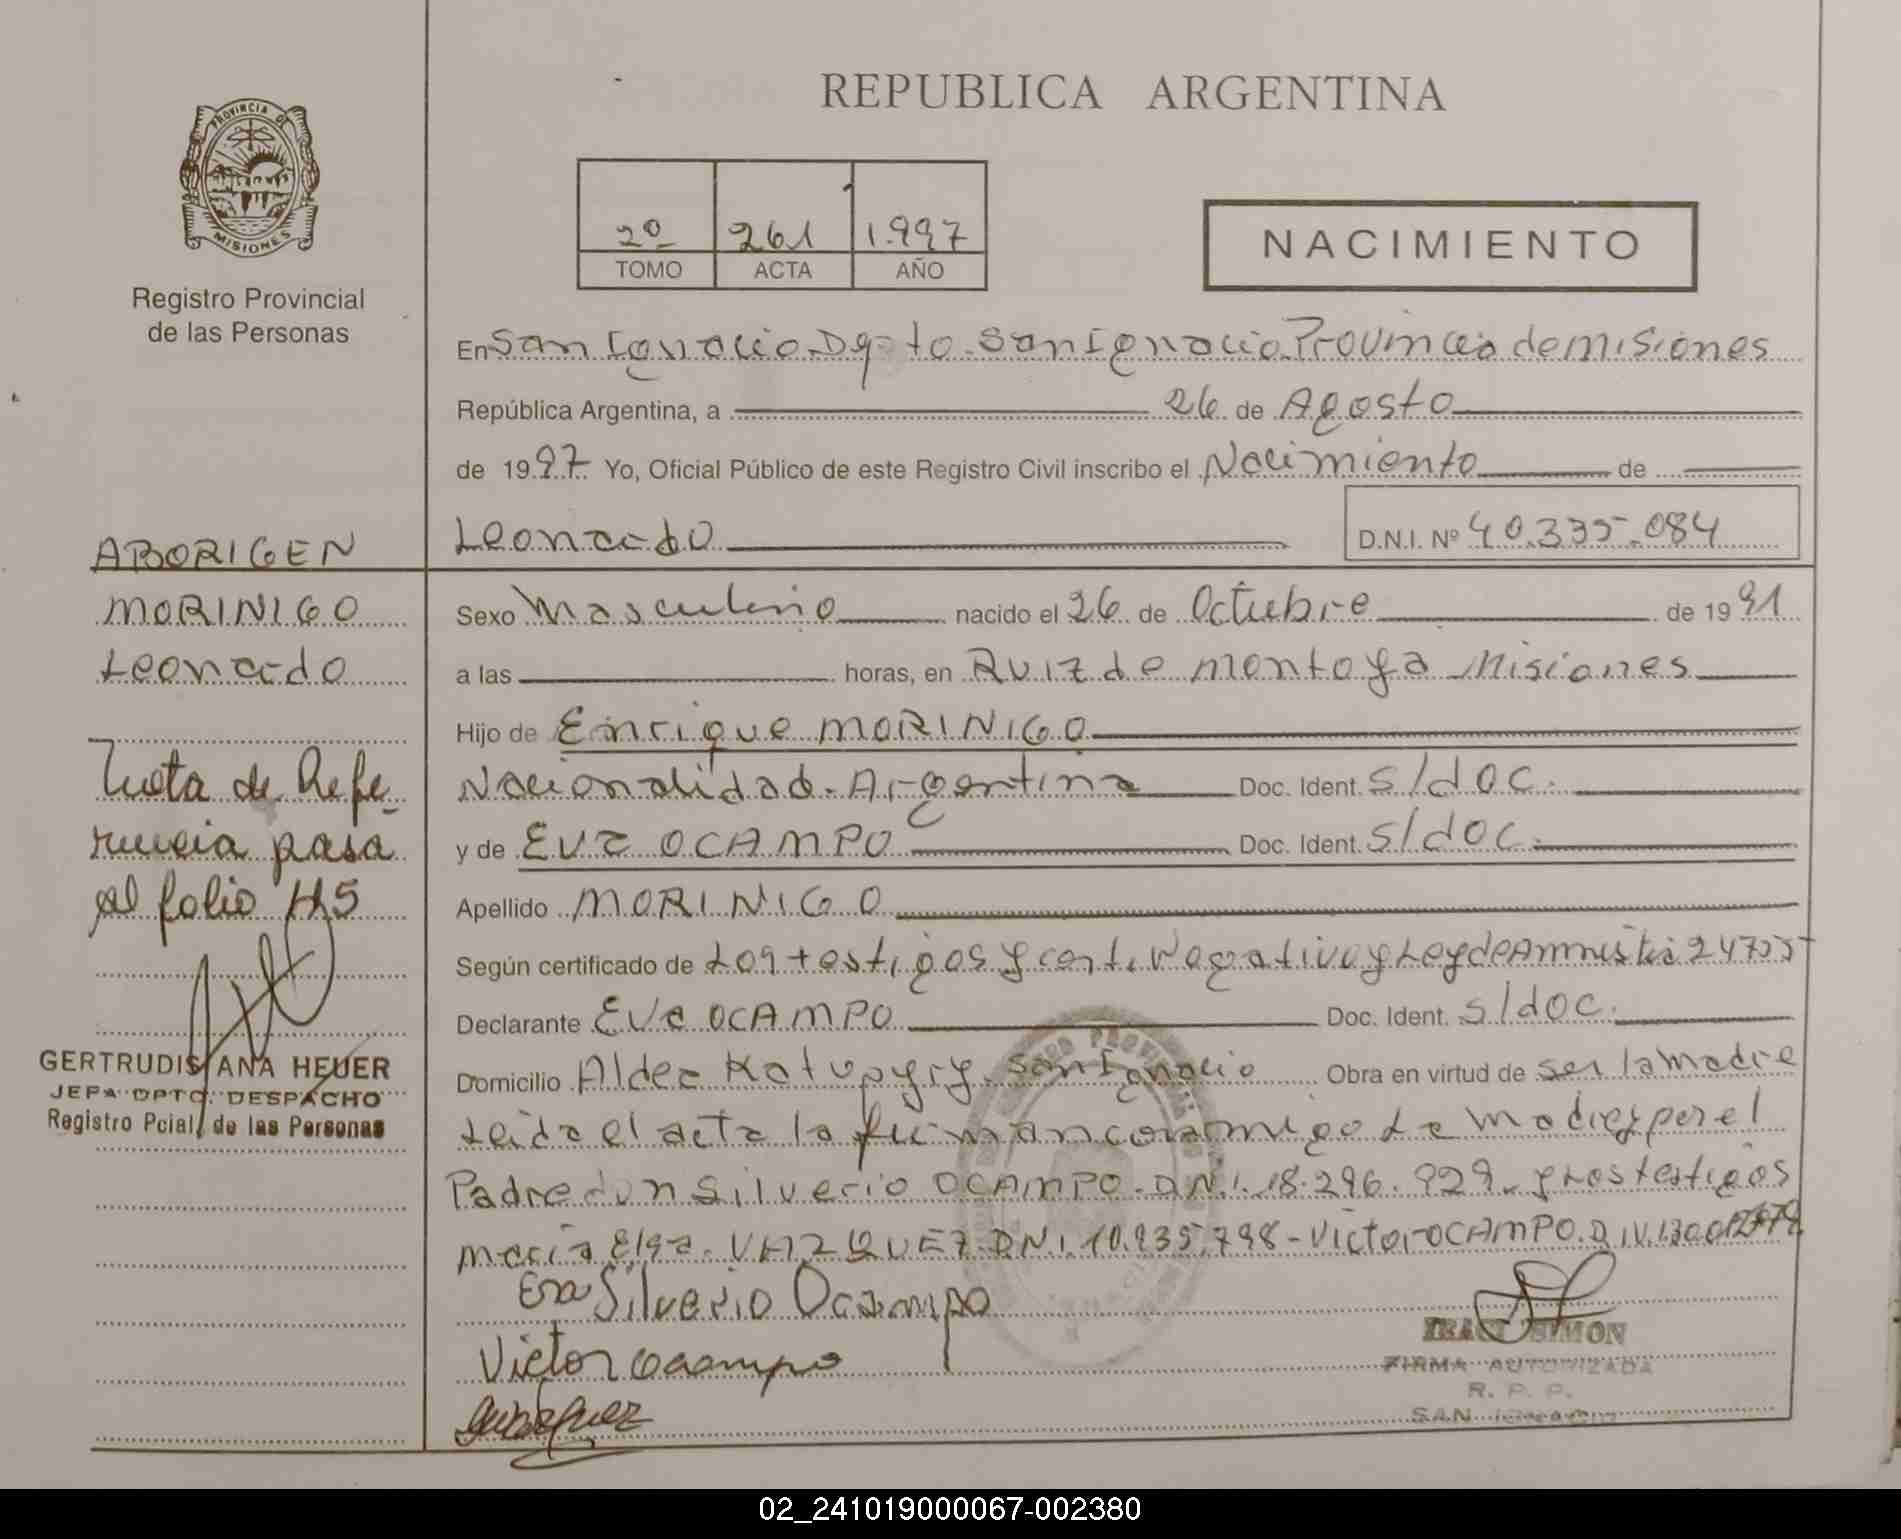 REPUBLICA ARGENTINA
PROVINCIA DE
MISIONES
Registro Provincial
de las Personas
2º 261 1.997
TOMO ACTA AÑO
NACIMIENTO
En San Ignacio Dpto. San Ignacio Provincia de misiones
República Argentina, a 26 de Agosto
de 1997 Yo, Oficial Público de este Registro Civil inscribo el Nacimiento de
Leonardo D.N.I. Nº 40.335.084
ABORIGEN
MORINIGO
Leonardo
Nota de Refe-
rencia pasa
al folio 115
GERTRUDIS ANA HEUER
JEFA DPTO. DESPACHO
Registro Pcial. de las Personas
Sexo Masculino nacido el 26 de Octubre de 1991
a las horas, en RUIZ de Montoya Misiones
Hijo de Enrique MORINIGO
Nacionalidad. Argentina Doc. Ident. S/doc.
y de EVA OCAMPO Doc. Ident. S/doc.
Apellido MORINIGO
Según certificado de Los testigos y cert. Negativo y Ley de Amnistia 24755
Declarante EVA OCAMPO Doc. Ident. S/doc.
Domicilio Aldea Katupyry. San Ignacio Obra en virtud de ser la Madre
Leida el acta la firman conmigo La Madre y por el
Padre don Silverio OCAMPO. DNI. 18.296.929. y Los testigos
Maria Elsa. VAZQUEZ. DNI. 10.935.798 - Victor OCAMPO. D.N.I.
Eva Silverio Ocampo
Victor ocampo
SIMON
FIRMA AUTORIZADA
R. P. P.
SAN IGNACIO
02_241019000067-002380